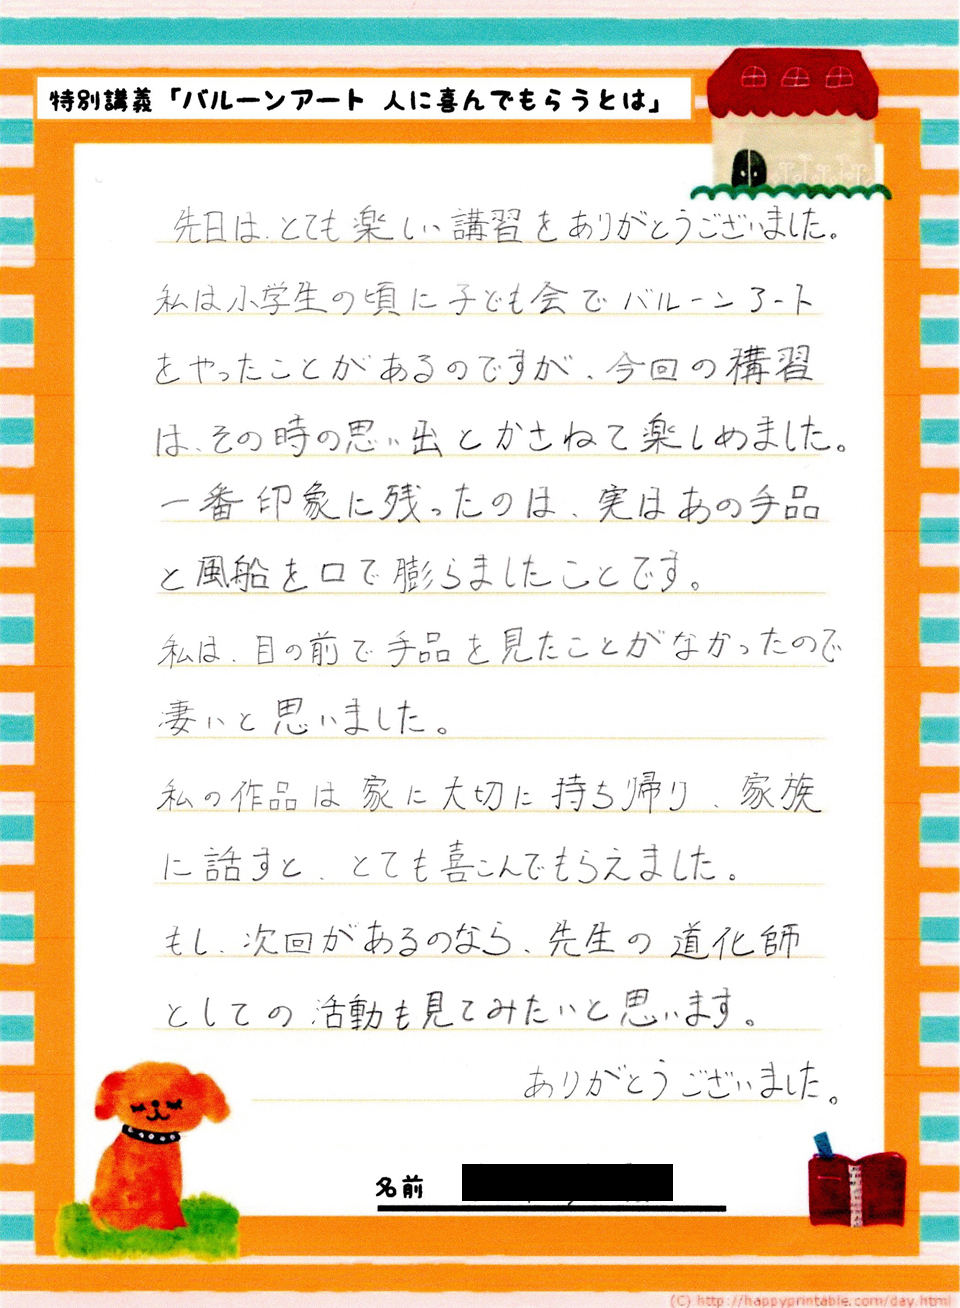 特別講義「バルーンアート 人に喜んでもらうとは」
先日は、とても楽しい講習をありがとうございました。
私は小学生の頃に子ども会でバルーンアート
をやったことがあるのですが、今回の構習
は、その時の思い出とかさねて楽しめました。
一番印象に残ったのは、実はあの手品
と風船を口で膨らましたことです。
私は、目の前で手品を見たことがなかったので
凄いと思いました。
私の作品は家に大切に持ち帰り、家族
に話すと、とても喜こんでもらえました。
もし、次回があるのなら、先生の道化師
としての活動も見てみたいと思います。
ありがとうございました。
名前
(C) http://happyprintable.com/day.html